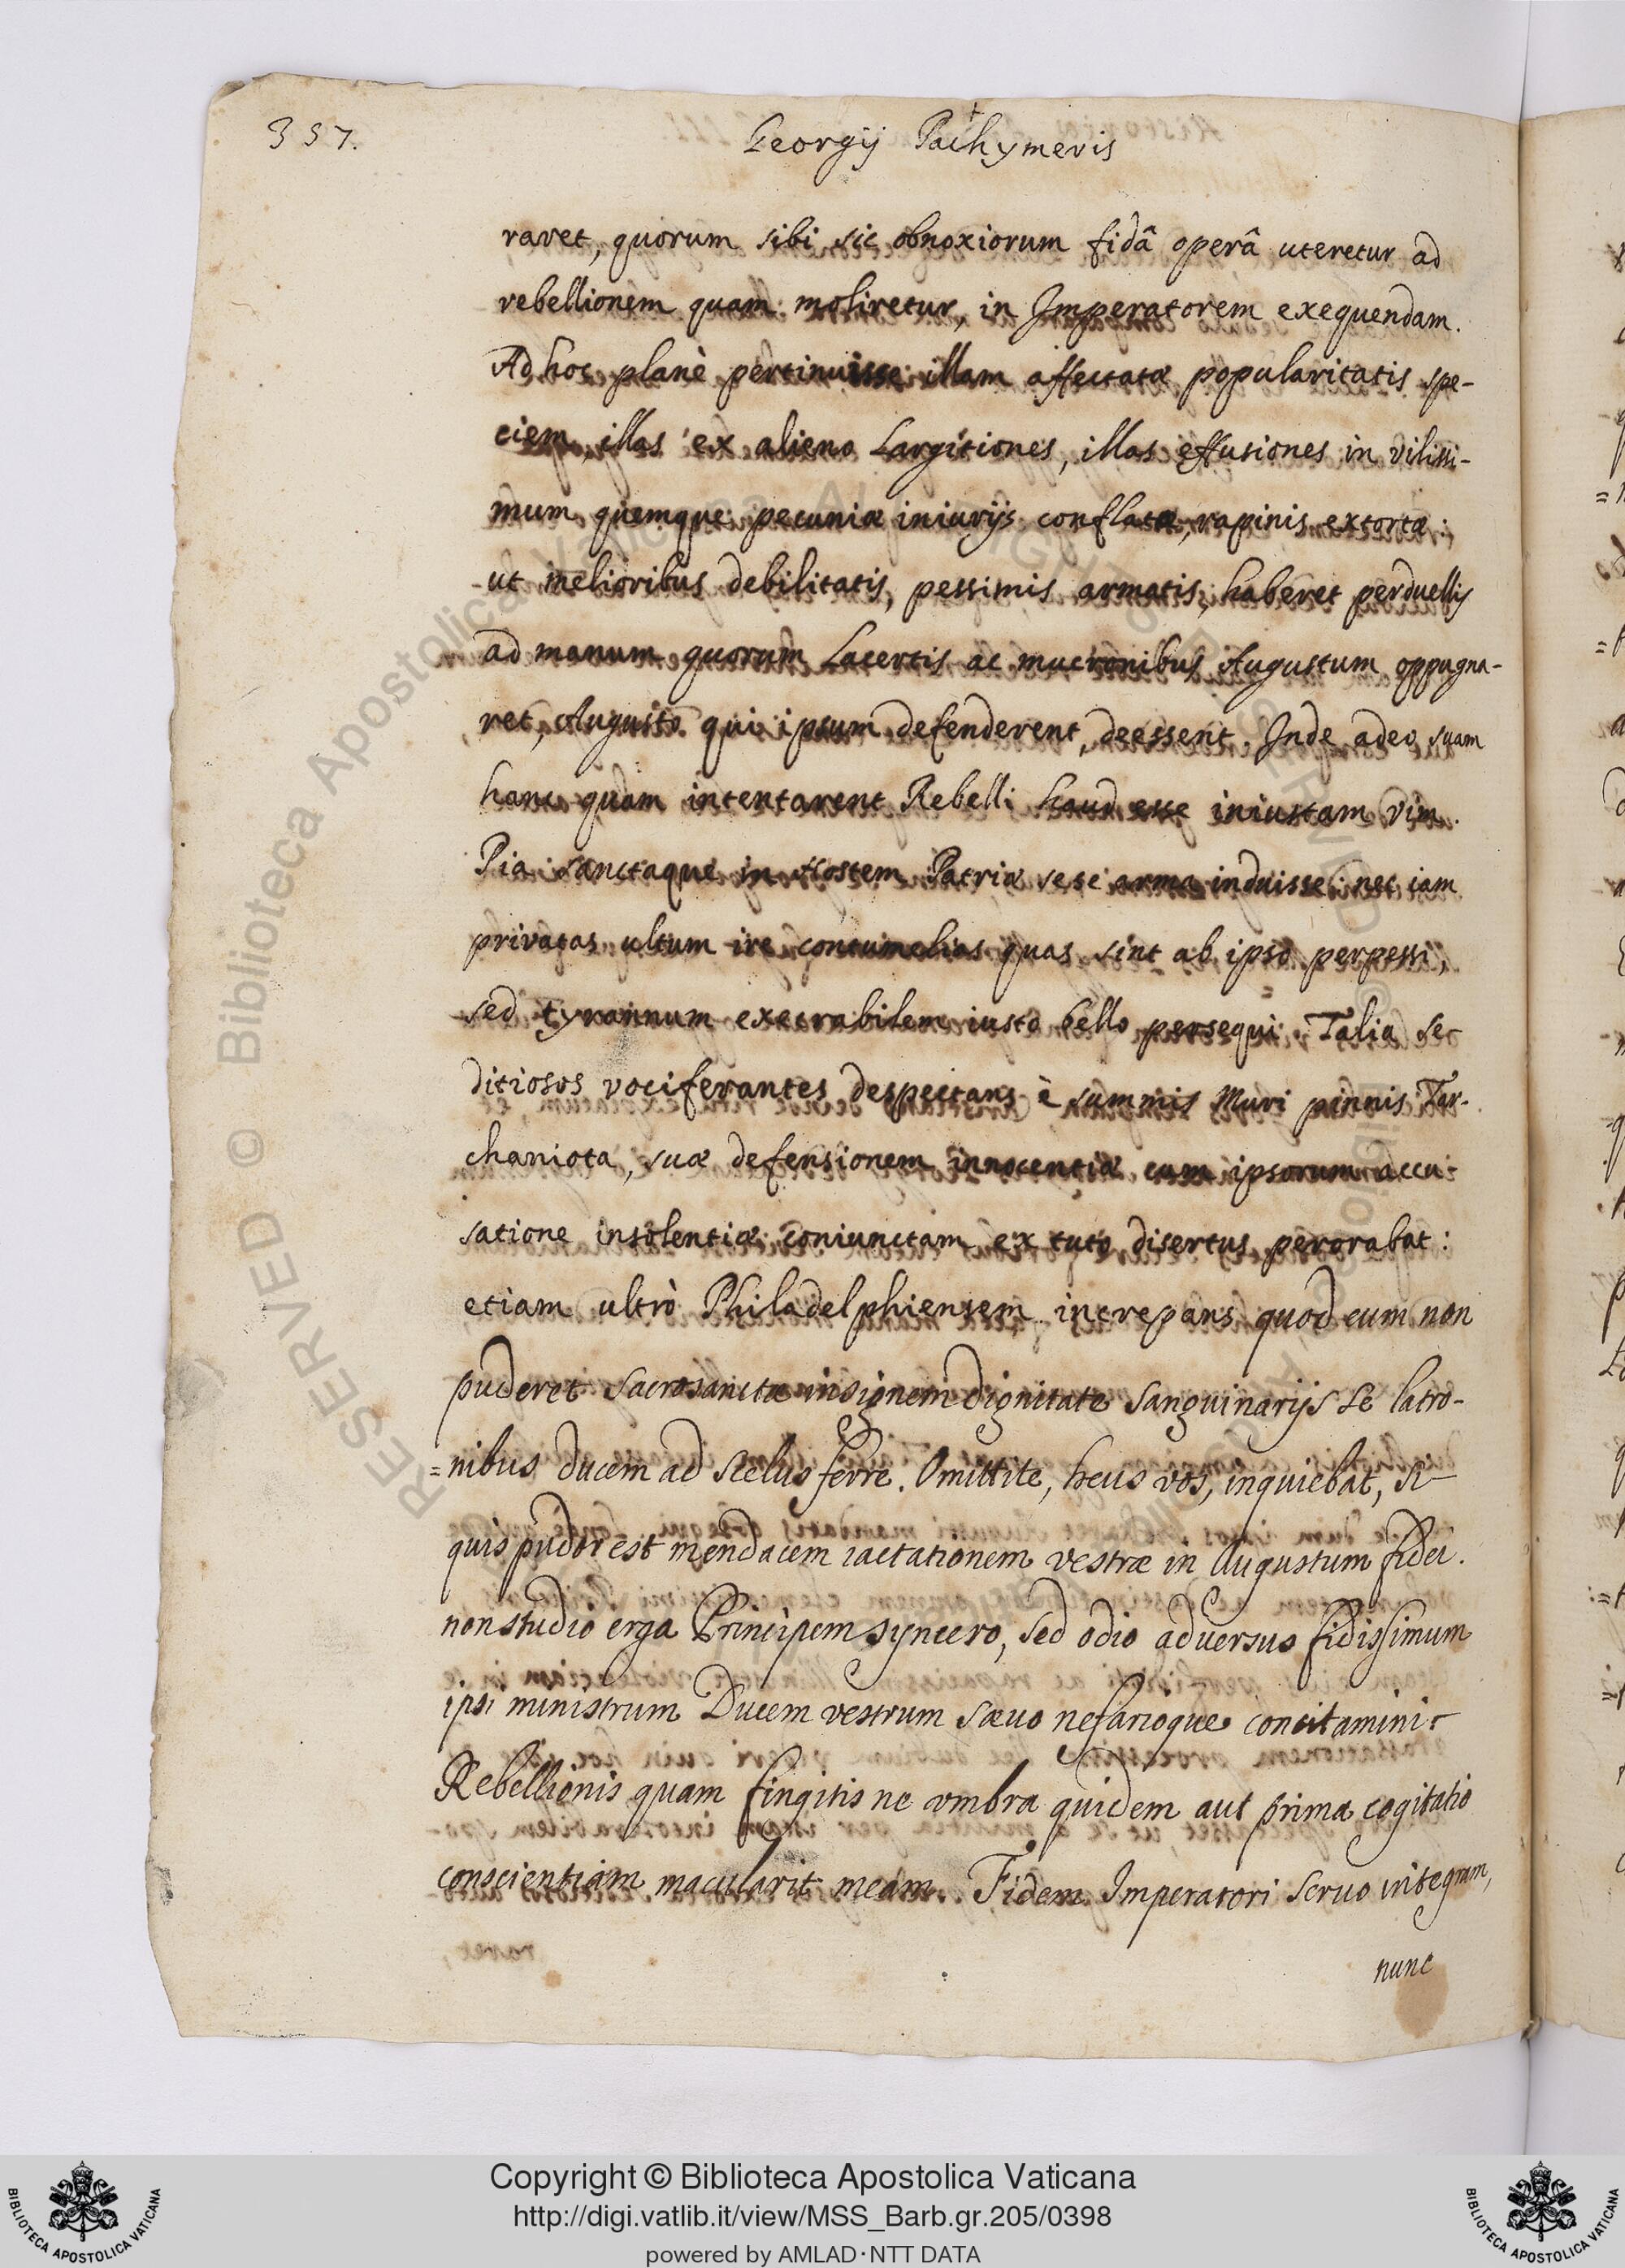 357.
Georgij Pachymeris
raret, quorum sibi sic obnoxiorum fidâ operâ uteretur ad
rebellionem quam moliretur, in Imperatorem exequendam.
Ad hoc planè pertinuisse illam affectatæ popularitatis spe-
ciem, illas ex alieno Largitiones, illas effusiones in vilissi-
mum quemque pecuniæ iniurijs conflatæ, rapinis extortæ:
ut melioribus debilitatis, pessimis armatis, haberet perduellis
ad manum quorum Lacertis ac mucronibus Augustum oppugna-
ret, Augusto qui ipsum defenderent, deessent. Inde adeo suam
hanc quam intentarent Rebelli haud esse iniustam vim.
Pia sanctaque in Hostem Patriæ sese arma induisse: nec iam
privatas ultum ire contumelias quas sint ab ipso perpessi,
sed tyrannum execrabilem iusto bello persequi. Talia se=
ditiosos vociferantes despectans è summis Muri pinnis Tar-
chaniota, suæ defensionem innocentiæ cum ipsorum accu-
satione insolentiæ coniunctam ex tuto disertus perorabat:
etiam ultrò Philadelphiensem increpans quod eum non
puderet sacrosancta insignem dignitate sanguinarijs se latro-
=nibus ducem ad scelus ferre. Omittite, heus vos, inquiebat, si
quis pudor est mendacem iactationem vestræ in Augustum fidei.
non studio erga Principem syncero, sed odio adversus fidissimum
ipsi ministrum Ducem vestrum sæuo nefarioque concitamini.
Rebellionis quam fingitis ne vmbra quidem aut prima cogitatio
conscientiam macularit meam. Fidem Imperatori seruo integram,
nunc
RESERVED © Biblioteca Apostolica Vaticana
Copyright © Biblioteca Apostolica Vaticana
http://digi.vatlib.it/view/MSS_Barb.gr.205/0398
powered by AMLAD·NTT DATA
BIBLIOTECA APOSTOLICA VATICANA
BIBLIOTECA APOSTOLICA VATICANA